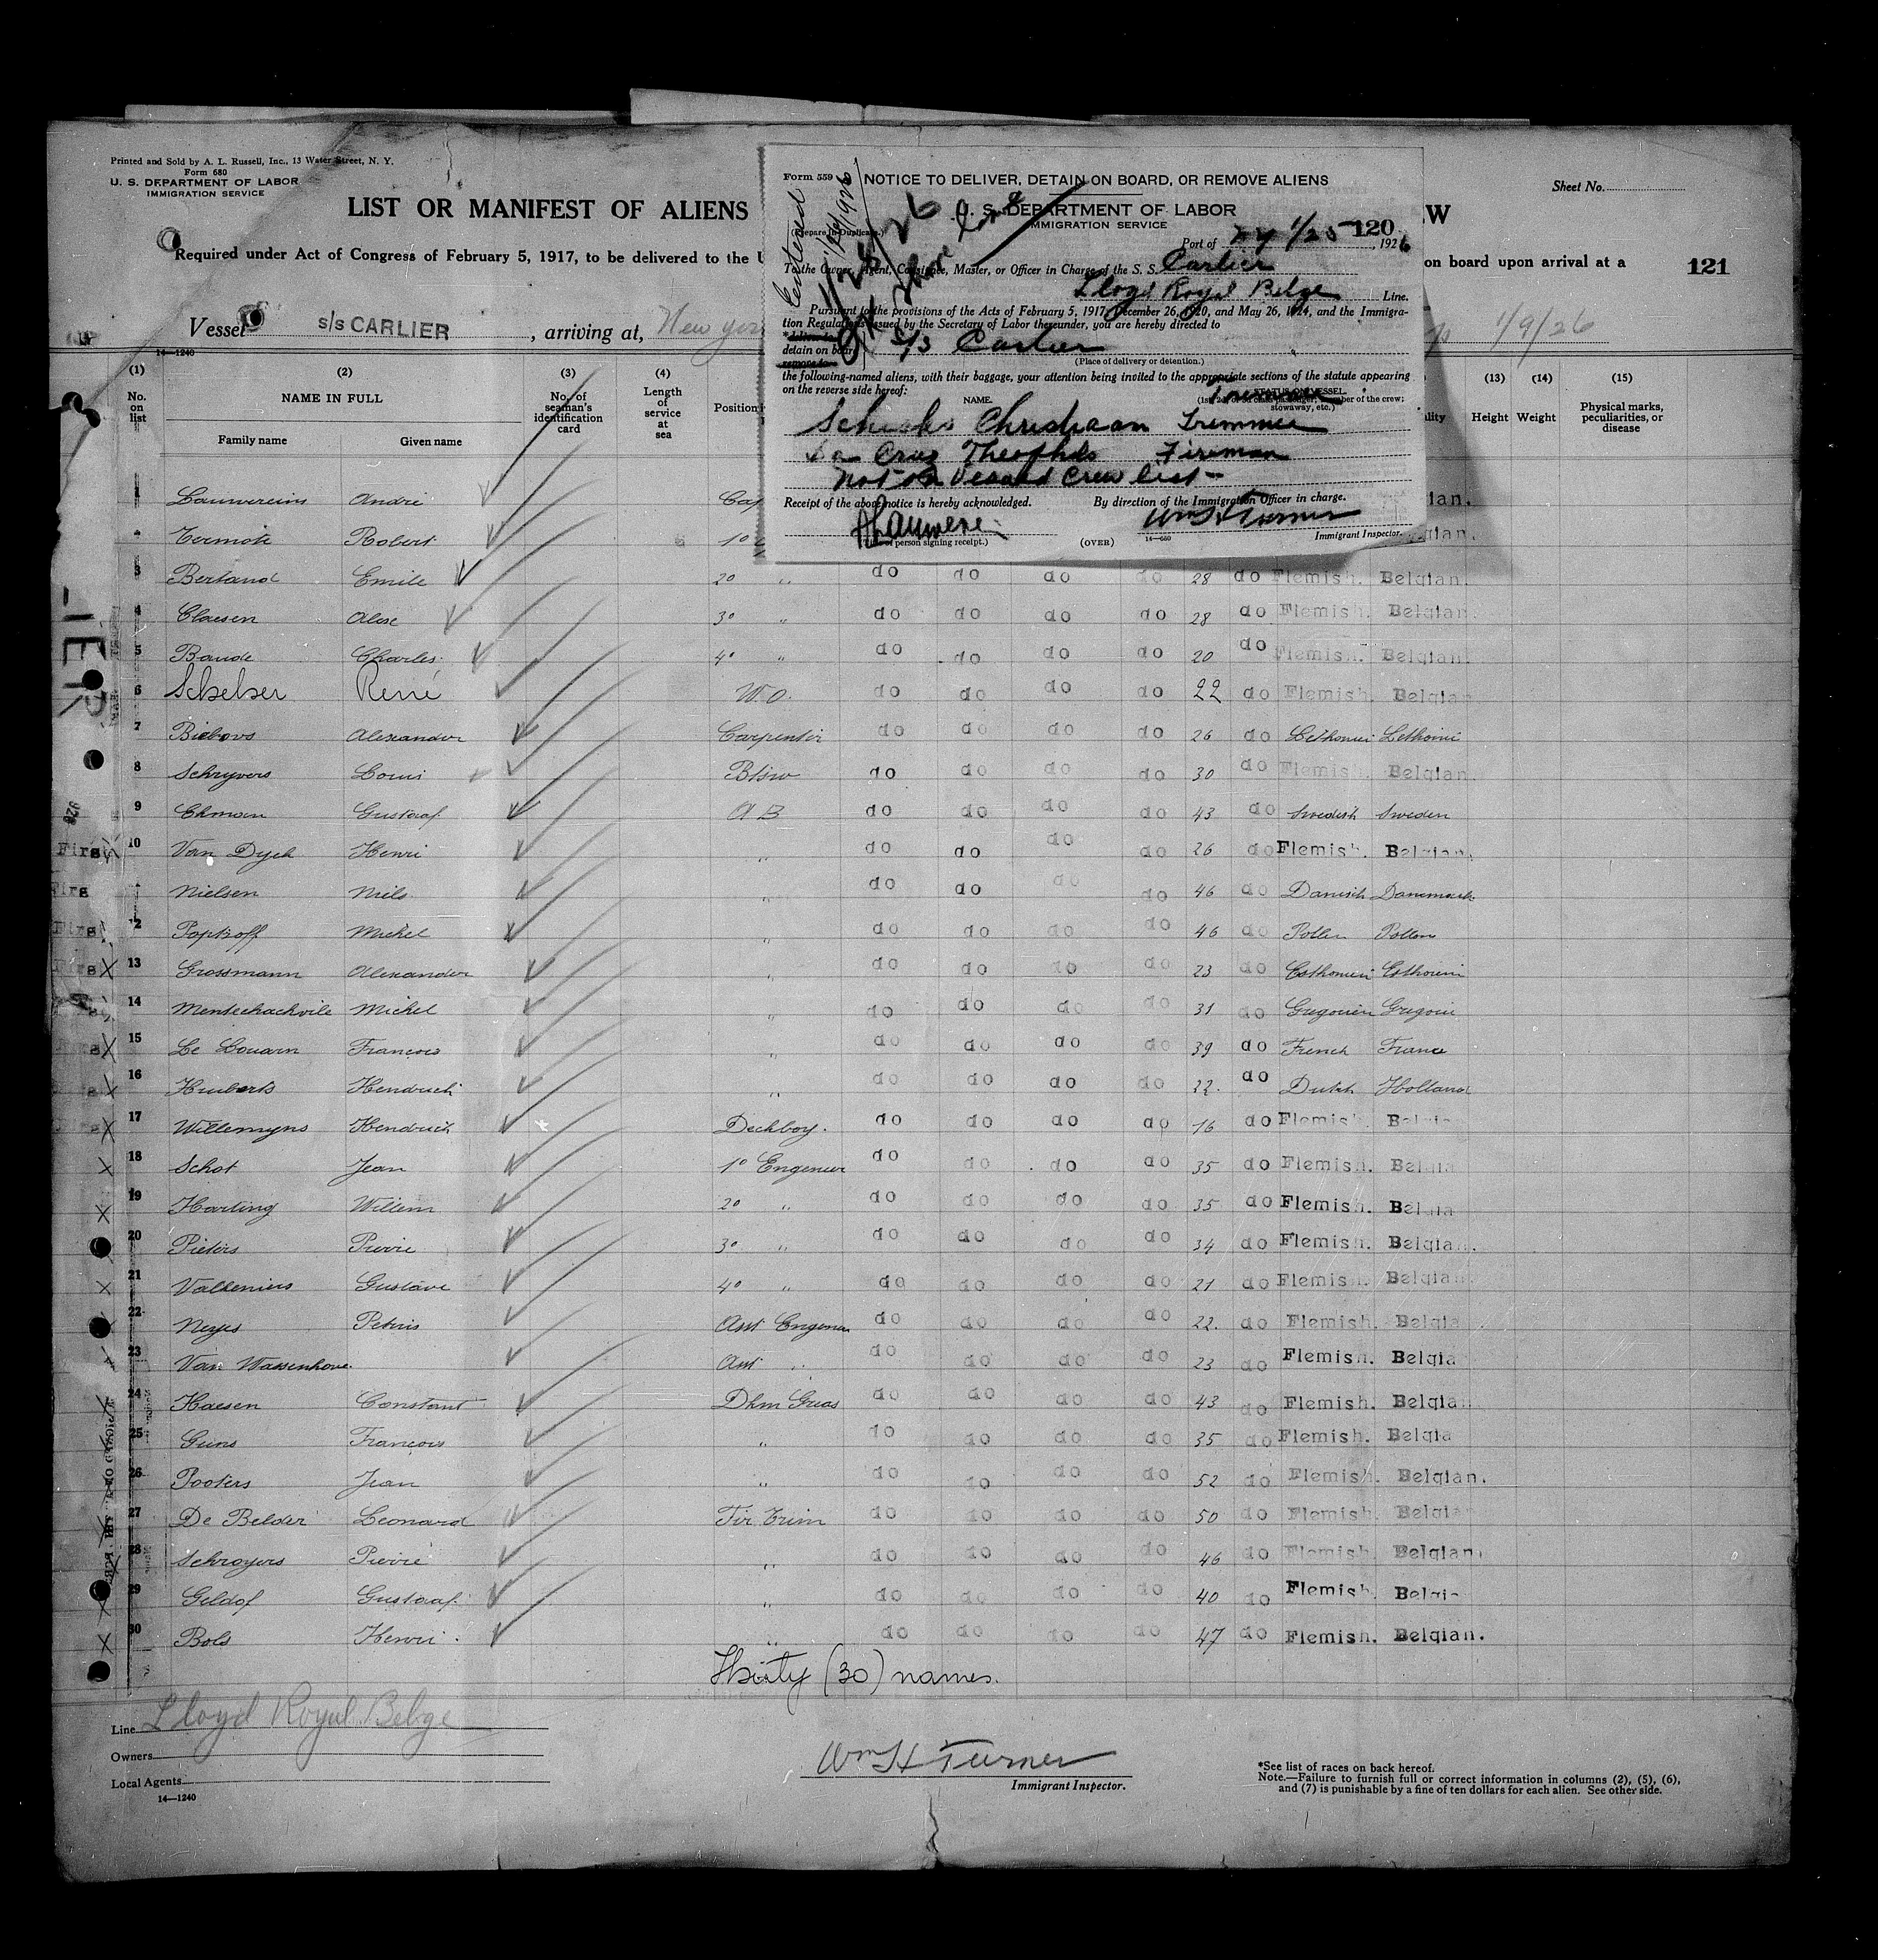 Printed and Sold by A. L. Russell, Inc., 13 Water Street, N. Y.
Form 680
U. S. DEPARTMENT OF LABOR
IMMIGRATION SERVICE
Sheet No.
LIST OR MANIFEST OF ALIENS
EW
Required under Act of Congress of February 5, 1917, to be delivered to the U
on board upon arrival at a
121
Vessel s/s CARLIER, arriving at, New York
1/9/26
14—1240
Form 559
NOTICE TO DELIVER, DETAIN ON BOARD, OR REMOVE ALIENS
U. S. DEPARTMENT OF LABOR
IMMIGRATION SERVICE
(Prepare in Duplicate.)
120
Port of NY 1/25, 1926
To the Owner, Agent, Consignee, Master, or Officer in Charge of the S. S. Carlier
Lloyd Royal Belge Line.
Pursuant to the provisions of the Acts of February 5, 1917, December 26, 1920, and May 26, 1924, and the Immigra-
tion Regulations issued by the Secretary of Labor thereunder, you are hereby directed to
detain on board S/S Carlier
remove to
(Place of delivery or detention.)
the following-named aliens, with their baggage, your attention being invited to the appropriate sections of the statute appearing
on the reverse side hereof:
NAME.
STATUS ON VESSEL
stowaway, etc.)
Christiaan Trimmer
Cruz Theophilo Fireman
Not on Vessels Crew list
Receipt of the above notice is hereby acknowledged.
By direction of the Immigration Officer in charge.
Wm H Turner
(Title of person signing receipt.)
(OVER)
14—680
Immigrant Inspector.
Entered
(1) (2) (3) (4) (13) (14) (15)
No. on list
NAME IN FULL
Family name
Given name
No. of seaman's identification card
Length of service at sea
Position
Height
Weight
Physical marks, peculiarities, or disease
1 Lauwereins André Cap
Termote Robert 1º
3 Bertand Emile 2º " do do do do 28 do Flemish. Belgian.
4 Claesen Alex 3º " do do do do 28 do Flemish. Belgian.
5 Baude Charles 4º " do do do do 20 do Flemish. Belgian.
6 Schelser René W.O. do do do do 22 do Flemish. Belgian
7 Alexander Carpenter do do do do 26 do
8 Schryvers Louis Btsw do do do do 30 do Flemish. Belgian.
9 Ekman Gustaaf A B do do do do 43 do Swedish Sweden
10 Van Dyck Henri " do do do do 26 do Flemish. Belgian.
Nielsen Niels " do do do do 46 do Danish Danemark
12 Popkoff Michel " do do do do 46 do Pollen Pollon
13 Grossmann Alexander " do do do do 23 do
14 Mentschachvile Michel " do do do do 31 do
15 Le Louarn François " do do do do 39 do French France
16 Huiberts Hendrick " do do do do 22. do Dutch Holland
17 Willemyns Hendrick Deckboy. do do do do 16 do Flemish Belgia
18 Schot Jean 1º Engeneer do do do do 35 do Flemish. Belgia
19 Harting Willem 2º " do do do do 35 do Flemish. Belgia
20 Pieters Pierre 3º " do do do do 34 do Flemish. Belgian.
21 Valkeniers Gustave 4º " do do do do 21 do Flemish. Belgian
22 Neyes Petrus Asst Engeneer do do do do 22. do Flemish. Belgia
23 Van Wassenhove. Asst " do do do do 23 do Flemish. Belgia
24 Haesen Constant Dkm Greas do do do do 43 do Flemish. Belgia
25 Guns François " do do do do 35 do Flemish. Belgia
26 Pooters Jean " do do do do 52 do Flemish. Belgian.
27 De Belder Leonard Fir Trim do do do do 50 do Flemish. Belgia
28 Schroyers Pierre " do do do do 46 do Flemish. Belgian.
29 Geldof Gustaaf " do do do do 40 do Flemish. Belgia
30 Bols Henri " do do do do 47 do Flemish. Belgian.
Thirty (30) names.
Line Lloyd Royal Belge
Owners
Local Agents
14—1240
Wm H Turner
Immigrant Inspector.
*See list of races on back hereof.
Note.—Failure to furnish full or correct information in columns (2), (5), (6),
and (7) is punishable by a fine of ten dollars for each alien. See other side.